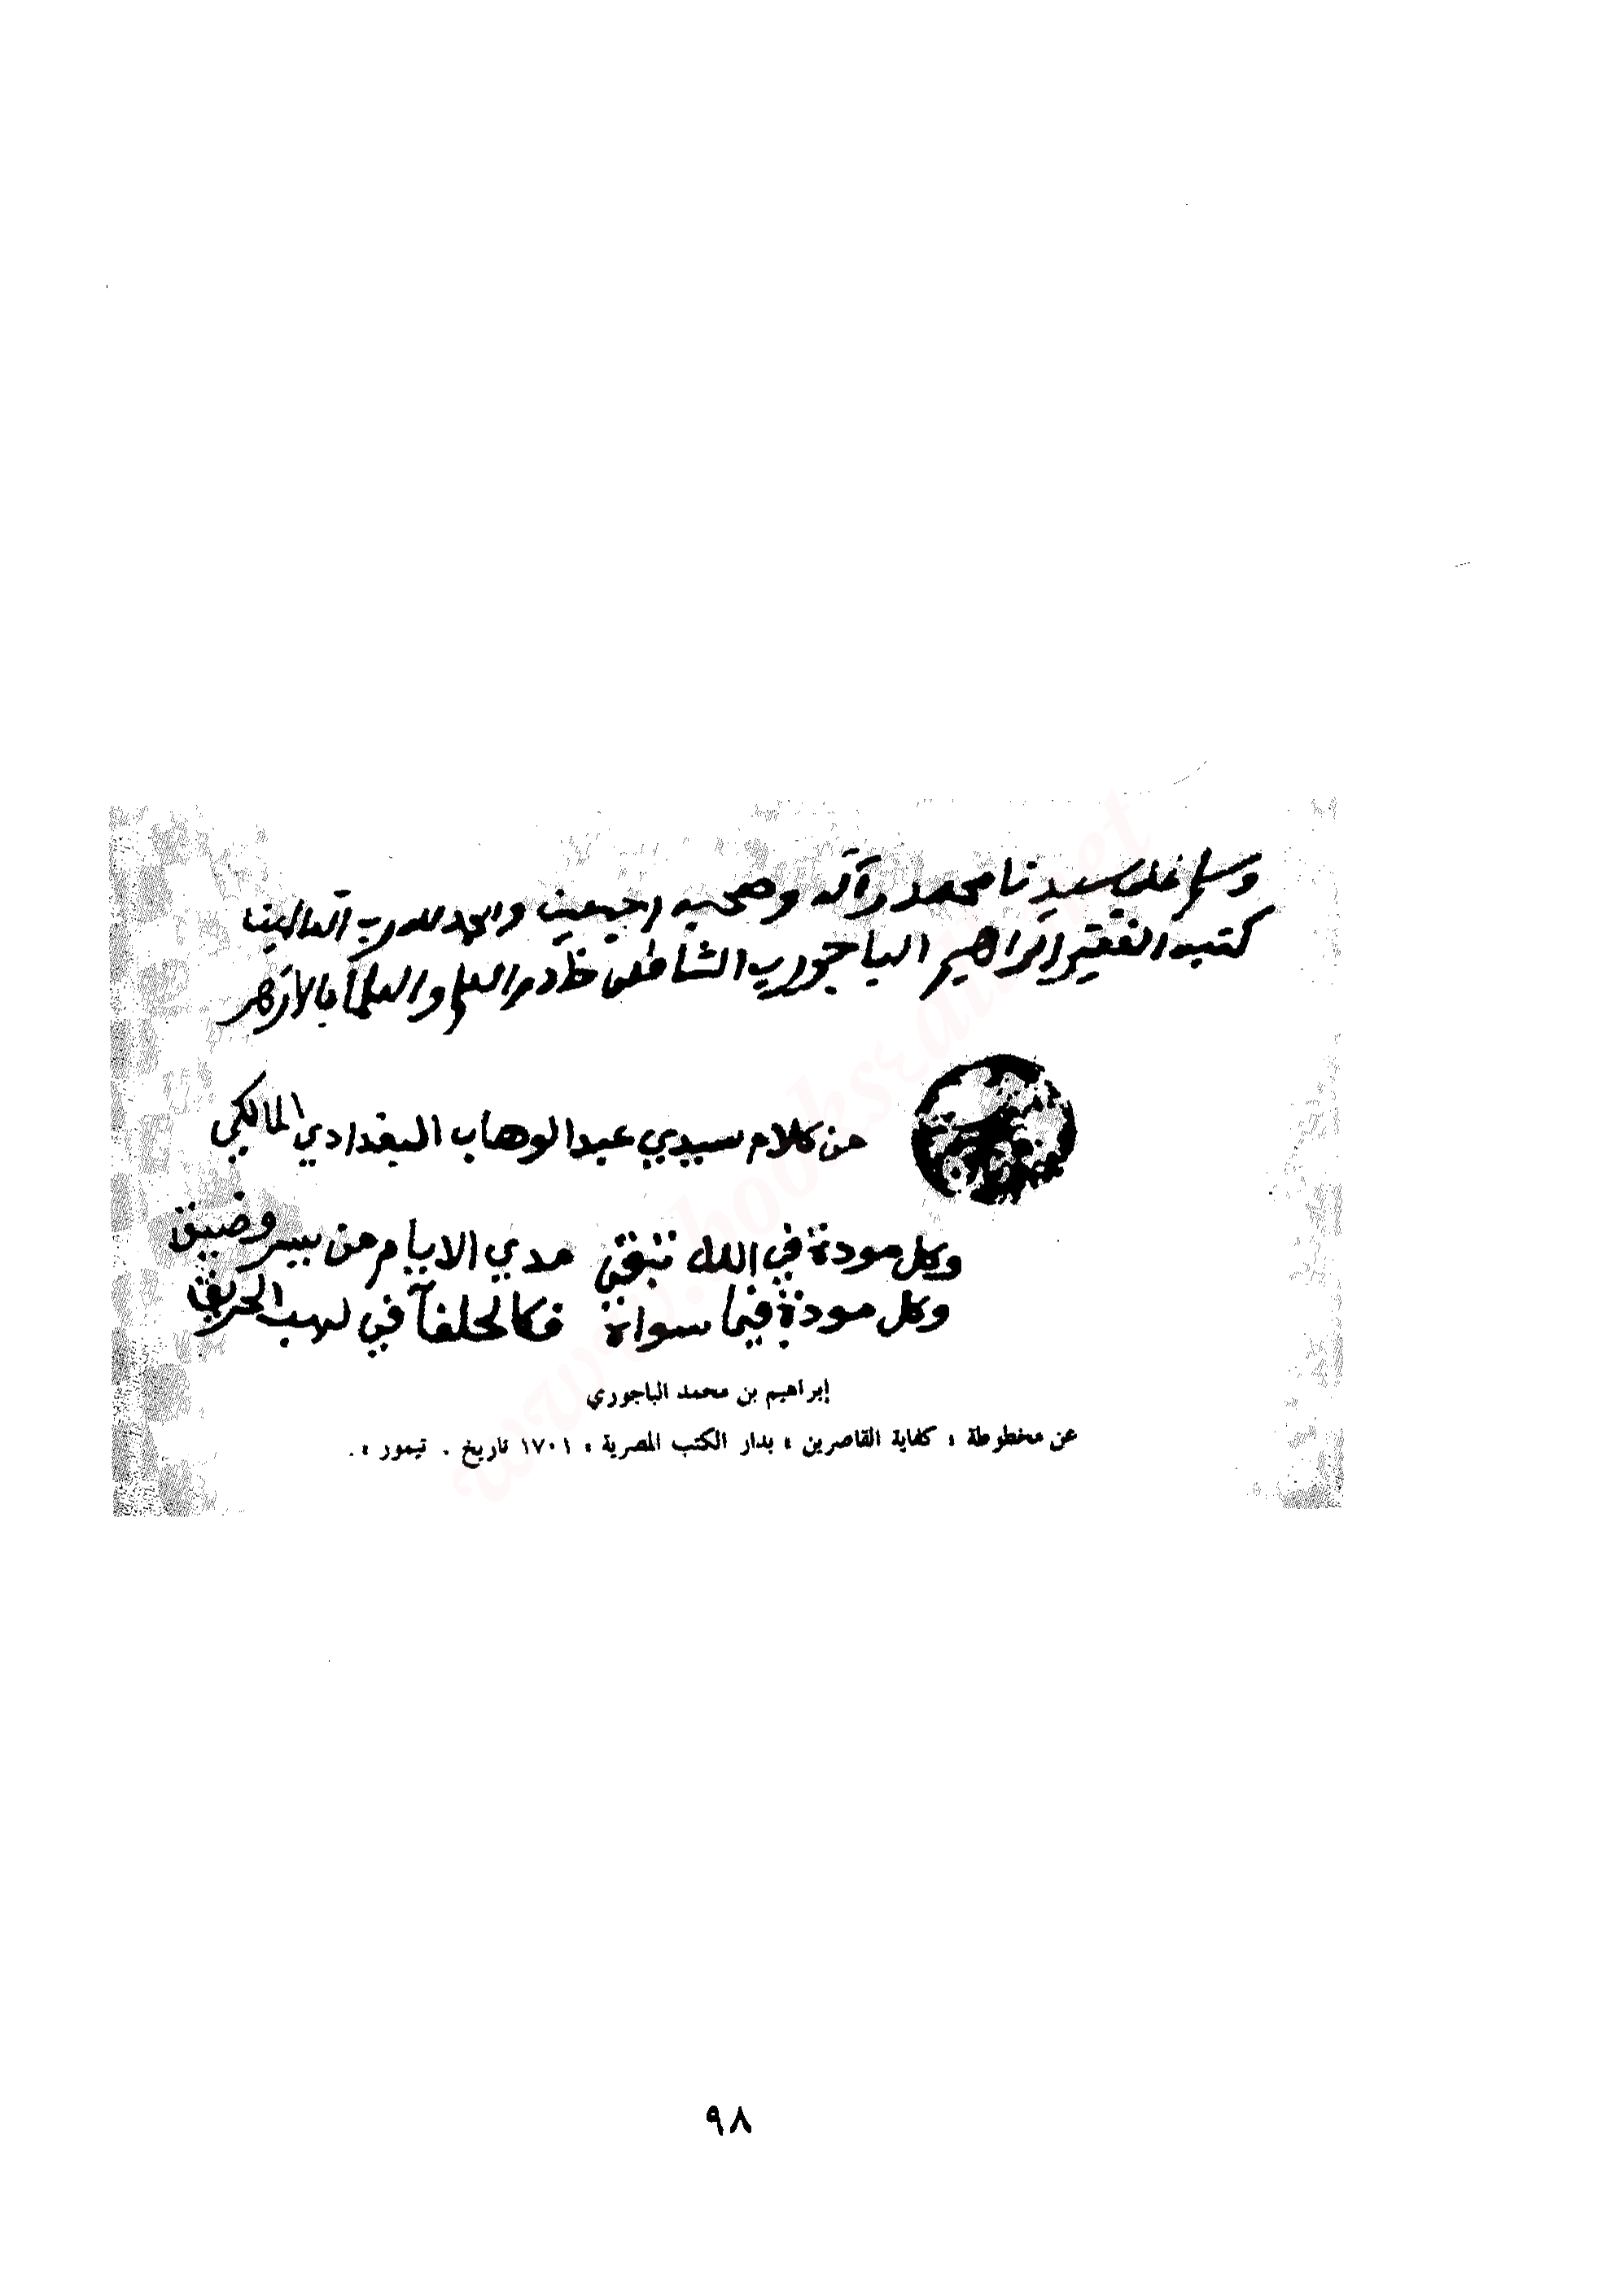 وسلم على سيدنا محمد وآله وصحبه اجمعين والحمد لله رب العالمين
كتبه الفقير ابراهيم الباجوري الشافعي خادم العلم والعلما بالازهر
من كلام سيدي عبد الوهاب البغدادي المالكي
وكل مودة في الله تبقي مدي الايام من يسر وضيق
وكل مودة فيما سواه فكالحلفآ في لهب الحريق
إبراهيم بن محمد الباجوري
عن مخطوطة « كفاية القاصرين » بدار الكتب المصرية « ١٧٠١ تاريخ . تيمور » .
www.books4all.net
٩٨